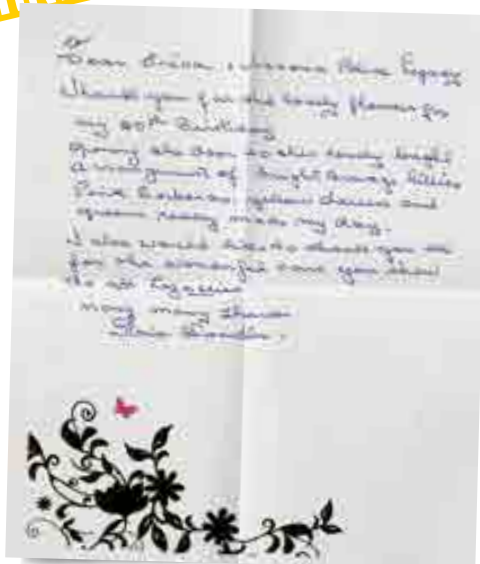 Dear
Thank you for the lovely flowers for
my 60th Birthday
Opening the door to this lovely bright
arrangement of bright orange lillies
Pink Gerberas, yellow daisies and
green really made my day.
I also would like to thank you all
for the wonderful care you show
to all
many many thanks